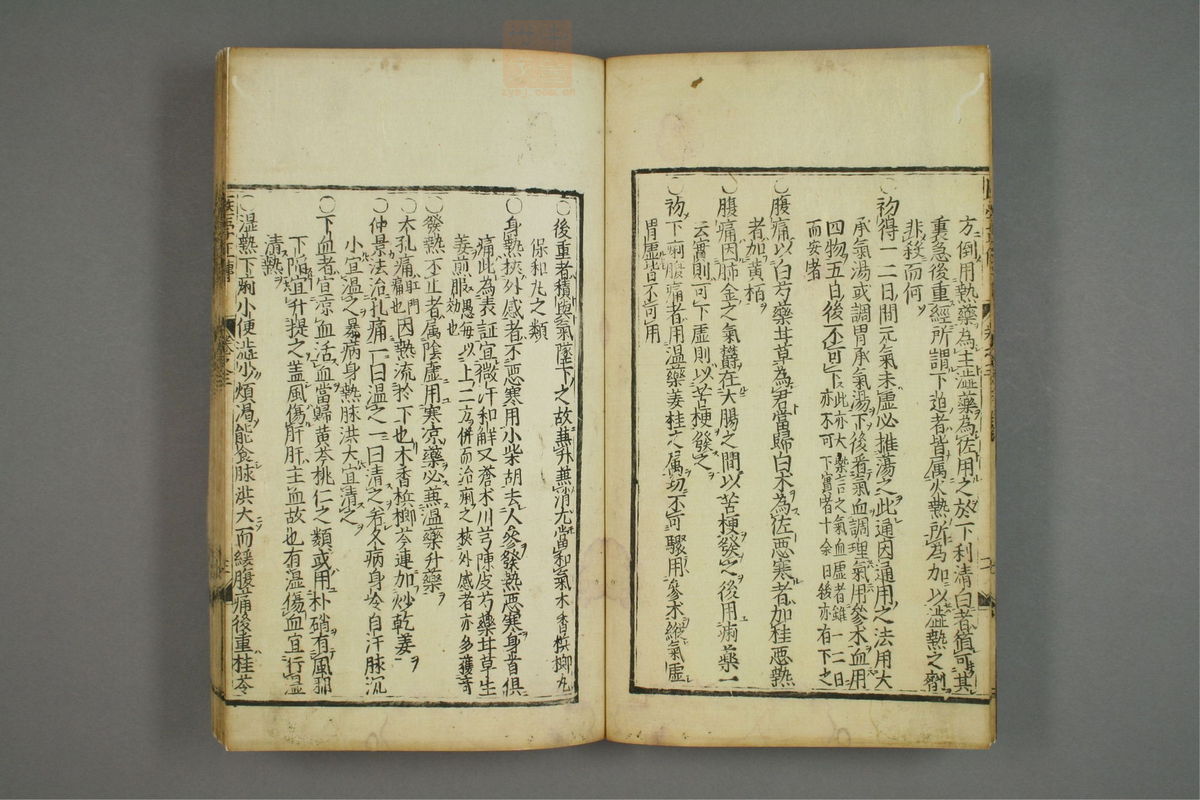 方倒用熱藥為主澁藥為佐用之於下利清白者猶可其
裏急後重經所謂下迫者皆属火熱所為加以澁熱之劑
非殺而何
〇初得一二日間元氣未虛必推蕩之此通因通用之法用大
承氣湯或調胃承氣湯下後看氣血調理氣用參朮血用
四物五日後不可下此亦大槩言之氣血虛者雖一二日亦不可下實者十余日後亦有下之
而安者
〇腹痛以白芍藥甘草為君當歸白朮為佐惡寒者加桂惡熱
者加黄栢
〇腹痛因肺金之氣欝在大腸之間以苦梗發之後用痢藥一
云實則可下虛則以苦梗發之
〇初下痢腹痛者用温藥姜桂之属切不可驟用參朮縱氣虛
胃虛皆不可用
〇後重者積與氣墜下之故兼升兼消尤當和氣木香檳榔丸
保和丸之類
〇身熱挾外感者不惡寒用小柴胡去人參發熱惡寒身首俱
痛此為表証宜微汗和解又蒼朮川芎陳皮芍藥甘草生
姜煎服愚每以上二方併而治痢之挾外感者亦多獲奇
効也
〇發熱不止者属陰虛用寒凉藥必兼温藥升藥
〇大孔痛肛門痛也因熱流於下也木香檳榔芩連加炒乾姜
〇仲景法治孔痛一曰温之一曰清之看久病身冷自汗脉沉
小宜温之暴病身熱脉洪大宜清之
〇下血者宜凉血活血當歸黄芩桃仁之類或用朴硝有風邪
下陥宜升提之盖風傷肝肝主血故也有湿傷血宜行湿
清熱
〇湿熱下痢小便澁少煩渴能食脉洪大而緩腹痛後重桂苓